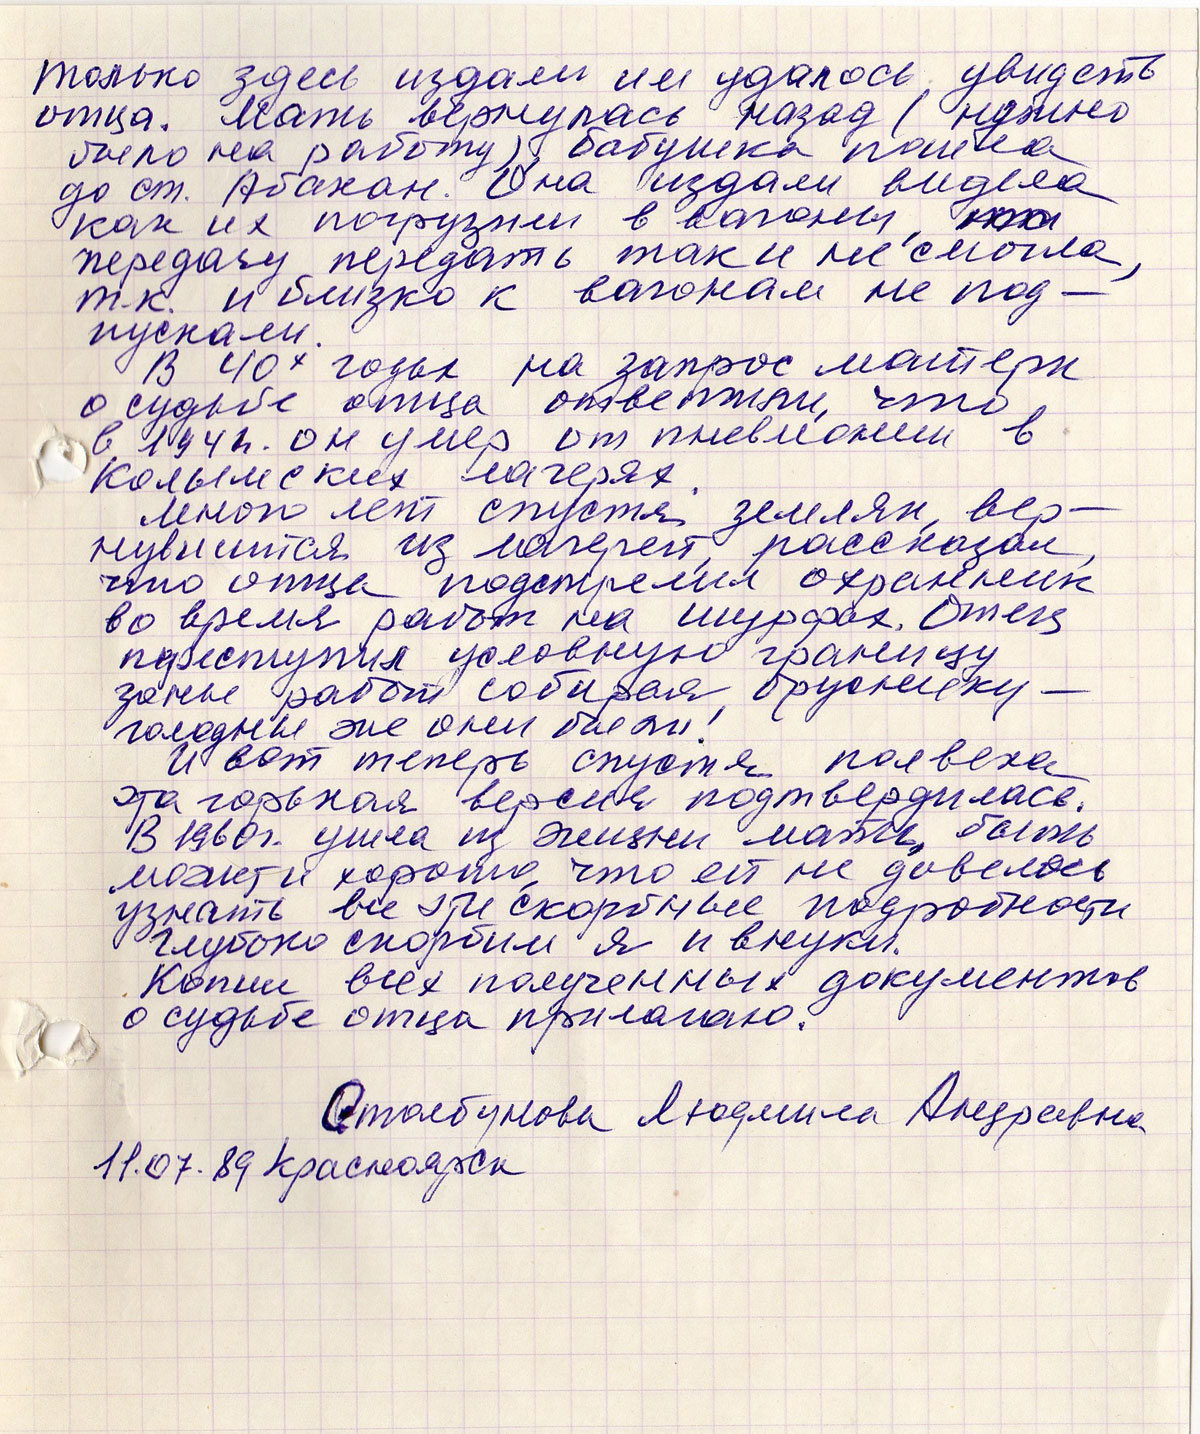 только здесь издали им удалось увидеть
отца. Мать вернулась назад (нужно
было на работу), бабушка пошла
до ст. Абакан. Она издали видела
как их погрузили в вагоны,
передачу передать так и не смогла,
т.к. и близко к вагонам не под-
пускали.
В 40х годы на запрос матери
о судьбе отца ответили, что
в 194 г. он умер от пневмонии в
Колымских лагерях.
Много лет спустя земляк, вер-
нувшийся из лагерей, рассказал,
что отца подстрелил охранник
во время работ на шурфах. Отец
переступил условную границу
зоны работ собирая бруснику -
голодные же они были!
И вот теперь спустя полвека
эта горькая версия подтвердилась.
В 1960г. ушла из жизни мать, быть
может и хорошо, что ей не довелось
узнать все эти скорбные подробности
Глубоко скорбим я и внуки.
Копии всех полученных документов
о судьбе отца прилагаю.
Столбунова Людмила Андреевна
11.07.89 Красноярск